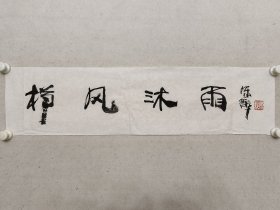 栉风沐雨